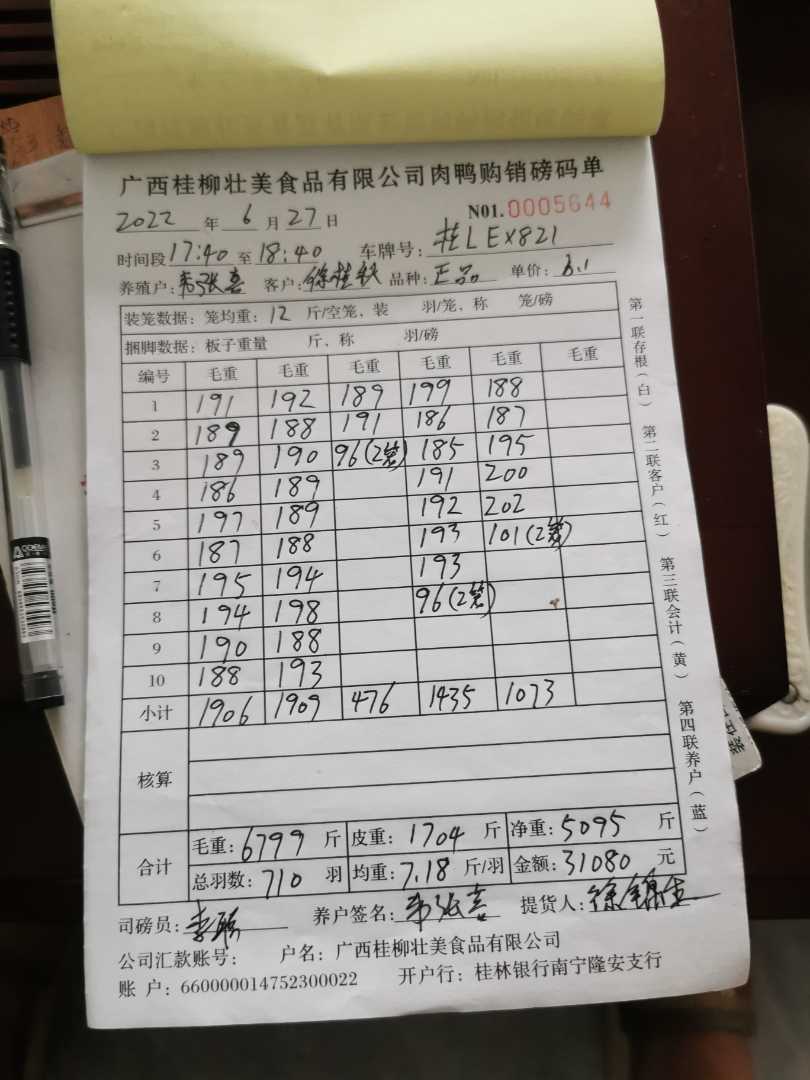 广西桂柳壮美食品有限公司肉鸭购销磅码单
2022 年 6 月 27 日 N01.0005644
时间段 17:40 至 18:40 车牌号: 桂LEX821
养殖户: 韦张喜 客户: 徐桂 品种: 正品 单价: 6.1
装笼数据: 笼均重: 12 斤/空笼、装 羽/笼、称 笼/磅
捆脚数据: 板子重量 斤、称 羽/磅
编号 毛重 毛重 毛重 毛重 毛重 毛重
1 191 192 189 199 188
2 189 188 191 186 187
3 189 190 96(2笼) 185 195
4 186 189 191 200
5 197 189 192 202
6 187 188 193 101(2笼)
7 195 194 193
8 194 198 96(2笼)
9 190 188
10 188 193
小计 1906 1909 476 1435 1073
核算
合计 毛重: 6799 斤 皮重: 1704 斤 净重: 5095 斤
总羽数: 710 羽 均重: 7.18 斤/羽 金额: 31080 元
司磅员: 养户签名: 韦张喜 提货人: 徐
公司汇款账号: 户名: 广西桂柳壮美食品有限公司
账 户: 660000014752300022 开户行: 桂林银行南宁隆安支行
第一联存根(白) 第二联客户(红) 第三联会计(黄) 第四联养户(蓝)